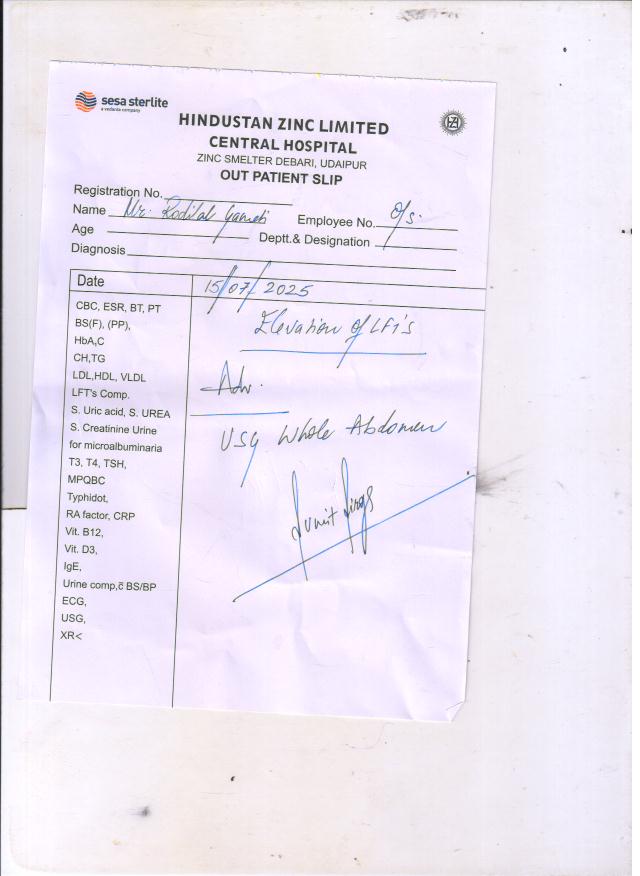 sesa sterlite
a vedanta company
HINDUSTAN ZINC LIMITED
CENTRAL HOSPITAL
ZINC SMELTER DEBARI, UDAIPUR
OUT PATIENT SLIP
Registration No.
Name Mr. Employee No. O/s.
Age Deptt.& Designation
Diagnosis
Date 15/07/2025
CBC, ESR, BT, PT
BS(F), (PP),
HbA,C
CH,TG
LDL,HDL, VLDL
LFT's Comp.
S. Uric acid, S. UREA
S. Creatinine Urine
for microalbuminaria
T3, T4, TSH,
MPQBC
Typhidot,
RA factor, CRP
Vit. B12,
Vit. D3,
IgE,
Urine comp,c̄ BS/BP
ECG,
USG,
XR<
Elevation of LFT's
Adv.
USG Whole Abdomen